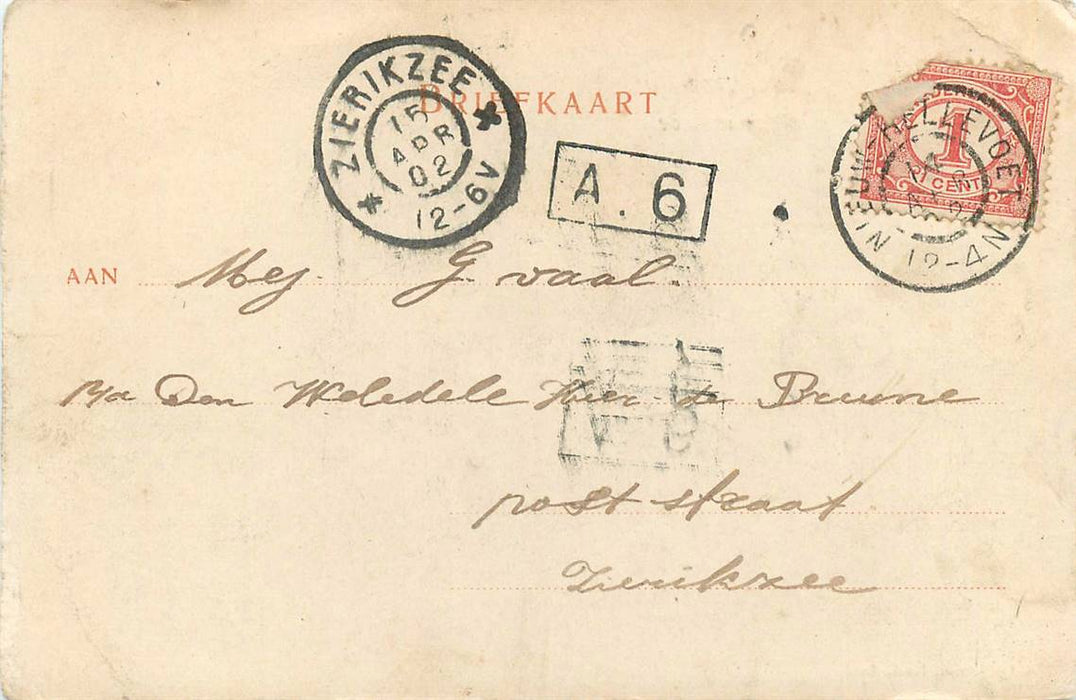 BRIEFKAART
ZIERIKZEE
15
APR
02
12-6V
A. 6
NIEUW-HELLEVOET
12-4N
1
CENT
AAN Mej. G vaal.
p/a Den Weledele Heer de Bruine
post straat
Zierikzee